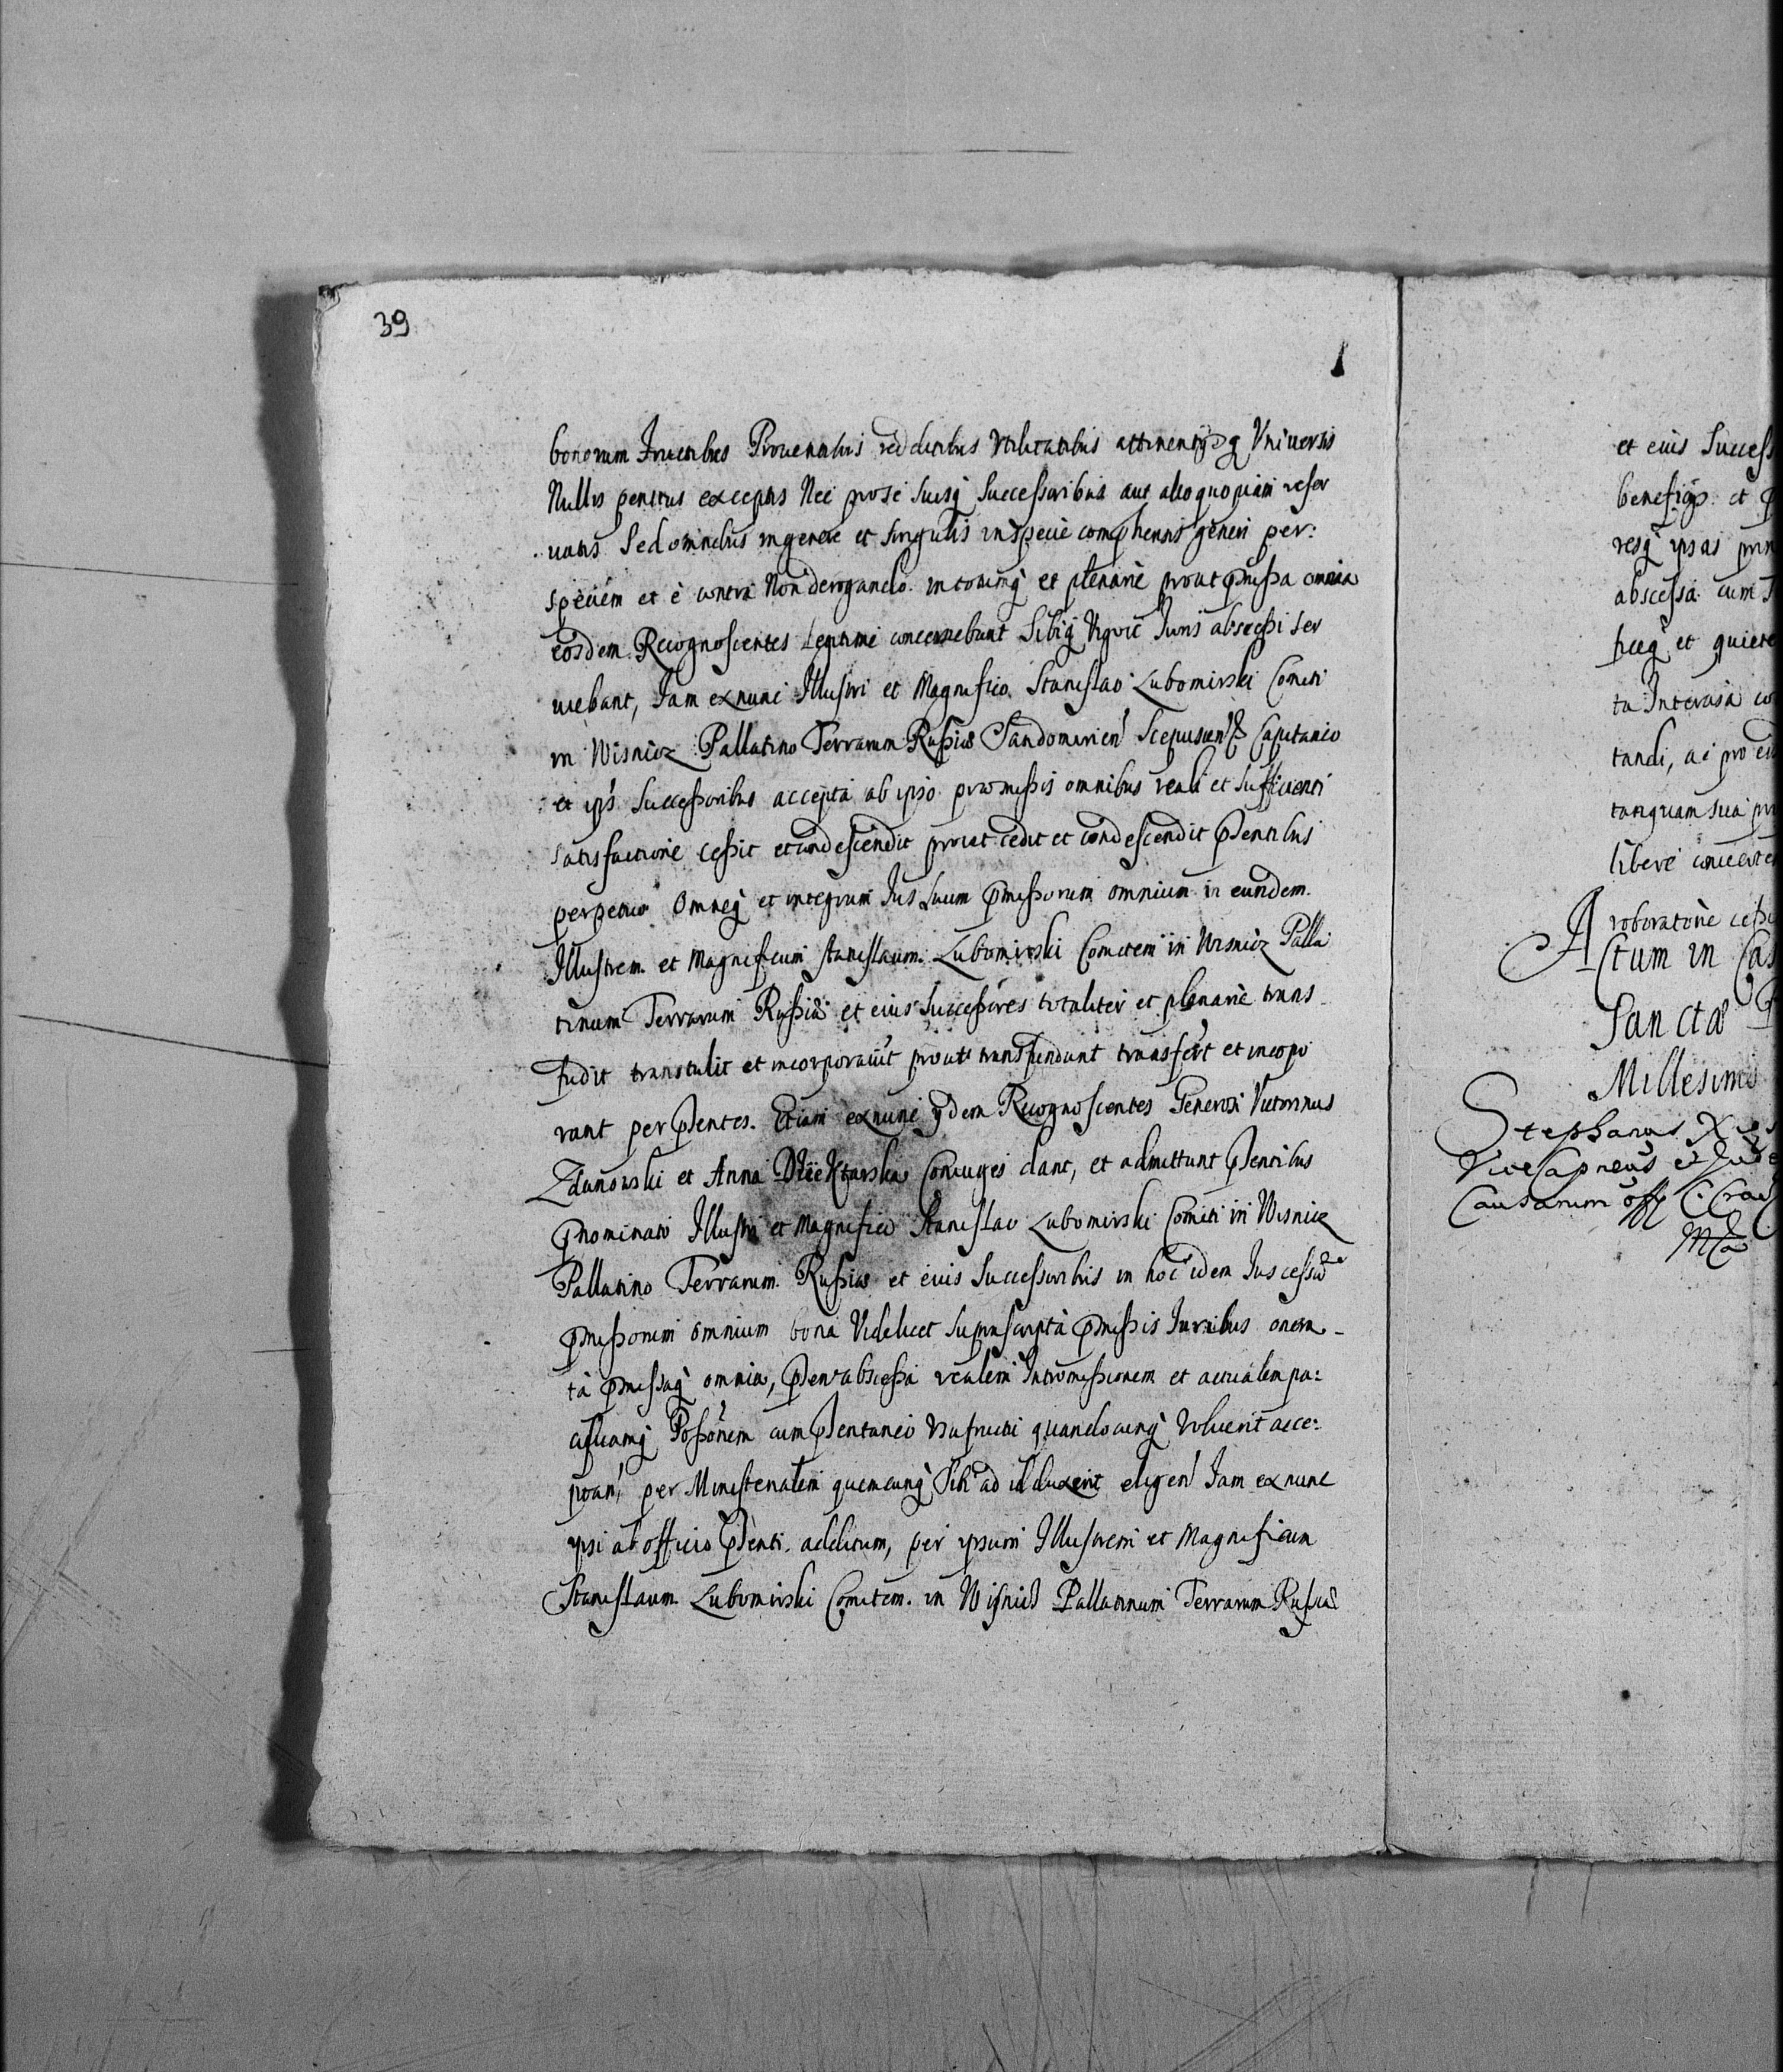 39
bonorum Fructibus Prouentibus redditibus Vtilitatibus attinentijsq Vniuersis
Nullis penitus exceptis Nec pro se suisq Successoribus aut alio quopiam reser
uatis Sed omnibus in genere et singulis in specie comphensis generi per:
speciem et è contra Non derogando. in toting et plenarie prout pmissa omnia
eosdem Recognoscentes Legitime concernebant Sibiq Vigore Iuris abscessi ser
uiebant, Iam ex nunc Illustri et Magnifico Stanislao Lubomirski Comiti
in Wisnicz Pallatino Terrarum Russiæ Sandomirien Scepusien & Capitaneo
et ips Successoribus accepta ab ipso præmissis omnibus reali et sufficienti
satisfactione cessit et condescendit prout cedit et condescendit psentibus
perpetuo Omneq et integrum Ius suum pmissorum omnium in eundem.
Illustrem et Magnificum Stanislaum Lubomirski Comitem in Wisnicz Palla
tinum Terrarum Russiæ et eius Successores totaliter et plenarie trans
fudit transtulit et incorporauit prout transfundunt transfert et incopo
rant per psentes. Etiam ex nunc ijdem Recognoscentes Generosi Victorinus
Zdanowski et Anna Coniuges dant, et admittunt psentibus
pnominato Illustri et Magnifico Stanislao Lubomirski Comiti in Wisnicz
Pallatino Terrarum Russiæ et eius Successoribus in hoc idem Ius cessu
pmissorum omnium bona Videlicet suprascripta pmissis Iuribus onera-
ta pmissaq omnia, psen abscessa realem Intromissionem et actualem pa:
cificamq Possonem cum psentaneo Vsufructu quandocunq Voluerit acce:
ptan, per Ministerialem quemcunq Sibi ad id duxerit eligen Iam ex nunc
ipsi ab officio psenti additum, per ipsum Illustrem et Magnificum
Stanislaum Lubomirski Comitem in Wisnicz Pallatinum Terrarum Russiæ
et eius Success
benefiijs et
resq ipsas
abscessa cum
ficeq et quiete
ta Interusa
tandi, ac pro
tanquam sua
libere conuerte
roboratone
Actum in Cas
Sanctæ
Millesimo
Stephanus
ViceCapneus et Iude
Causarum off C. Crac